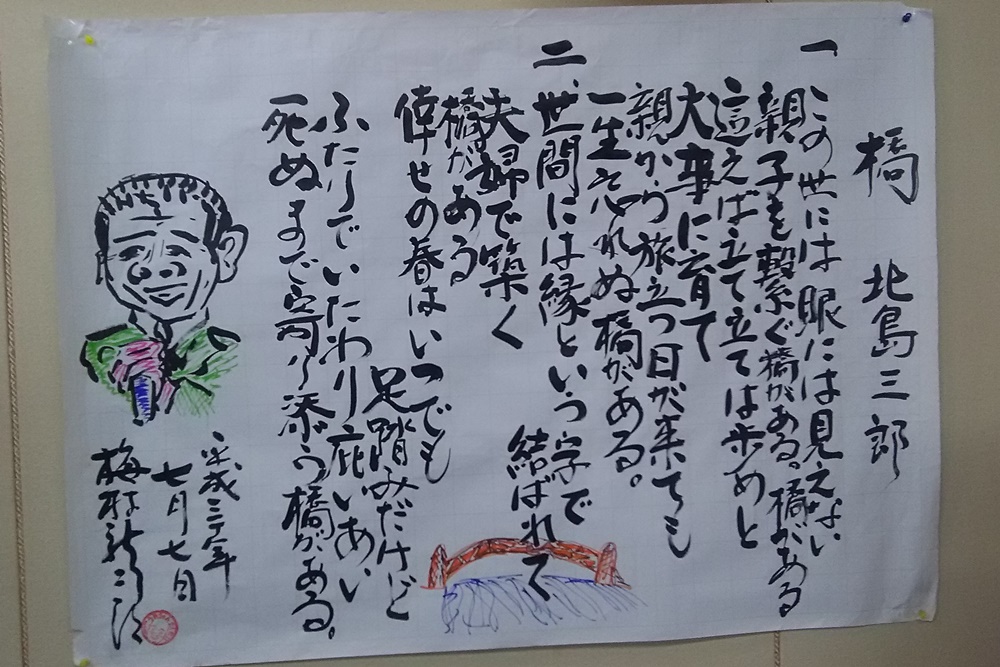 橋 北島三郎
一、この世には眼には見えない
親子を繋ぐ橋がある。橋がある
這えば立て立ては歩めと
大事に育て
親から旅立つ日が来ても
一生忘れぬ橋がある。
二、世間には縁という字で
結ばれて
夫婦で築く
橋がある
倖せの春はいつでも
足踏みだけど
ふたりでいたわり庇いあい
死ぬまで寄り添う橋がある。
平成三十年
七月七日